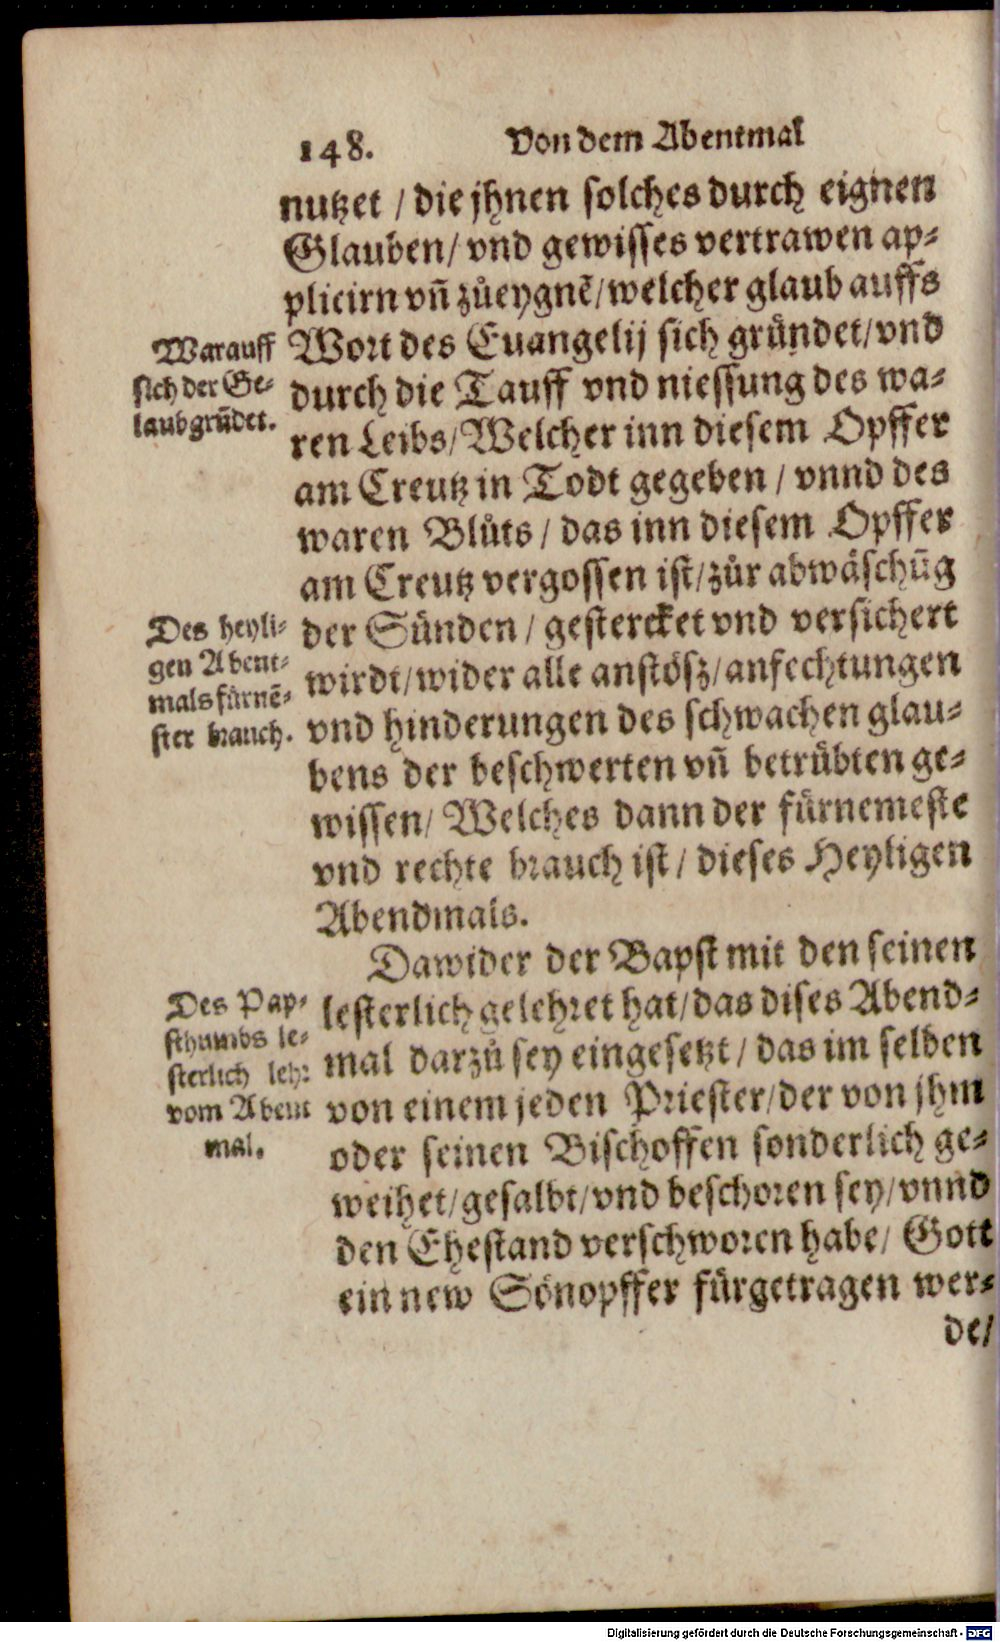 148. Von dem Abentmal
nutzet / die jhnen solches durch eignen
Glauben/ vnd gewisses vertrawen ap-
plicirn vñ zůeygnẽ/welcher glaub auffs
Warauff
sich der Ge-
laub grũdet.
Wort des Euangelij sich gründet/vnd
durch die Tauff vnd niessung des wa-
ren Leibs/Welcher inn diesem Opffer
am Creutz in Todt gegeben / vnnd des
waren Blůts / das inn diesem Opffer
am Creutz vergossen ist/zůr abwäschũg
Des heyli-
gen Abent-
mals fürnẽ-
ster brauch.
der Sünden / gestercket vnd versichert
wirdt/wider alle anstösz/anfechtungen
vnd hinderungen des schwachen glau-
bens der beschwerten vñ betrübten ge-
wissen/ Welches dann der fürnemeste
vnd rechte brauch ist / dieses Heyligen
Abendmals.
Dawider der Bapst mit den seinen
Des Pap-
sthumbs le-
sterlich lehr
vom Abent
mal.
lesterlich gelehret hat/das dises Abend-
mal darzů sey eingesetzt / das im selben
von einem jeden Priester/der von jhm
oder seinen Bischoffen sonderlich ge-
weihet/gesalbt/vnd beschoren sey/vnnd
den Ehestand verschworen habe/ Gott
ein new Sönopffer fürgetragen wer-
de/
Digitalisierung gefördert durch die Deutsche Forschungsgemeinschaft - DFG